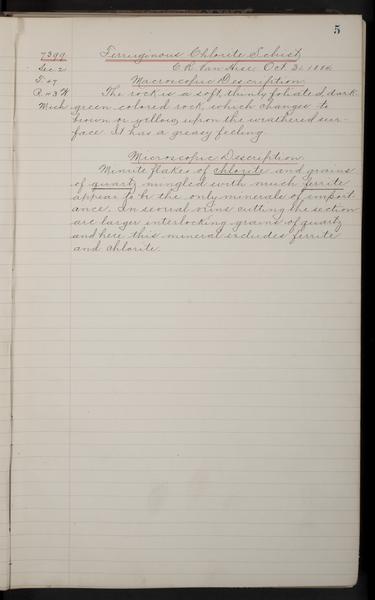 5
7399 Ferruginous Chlorite Schist
Sec. 2 C. R. Van Hise. Oct. 31 1884
T. 47 Macroscopic Description.
R. 43 W The rock is a soft, thinly foliated, dark-
Mich green colored rock, which changes to
brown or yellow, upon the weathered sur-
face. It has a greasy feeling.
Microscopic Description.
Minute flakes of chlorite and grains
of quartz mingled with much ferrite
appear to be the only minerals of import-
ance. In several veins cutting the section
are larger interlocking grains of quartz
and here this mineral excludes ferrite
and chlorite.